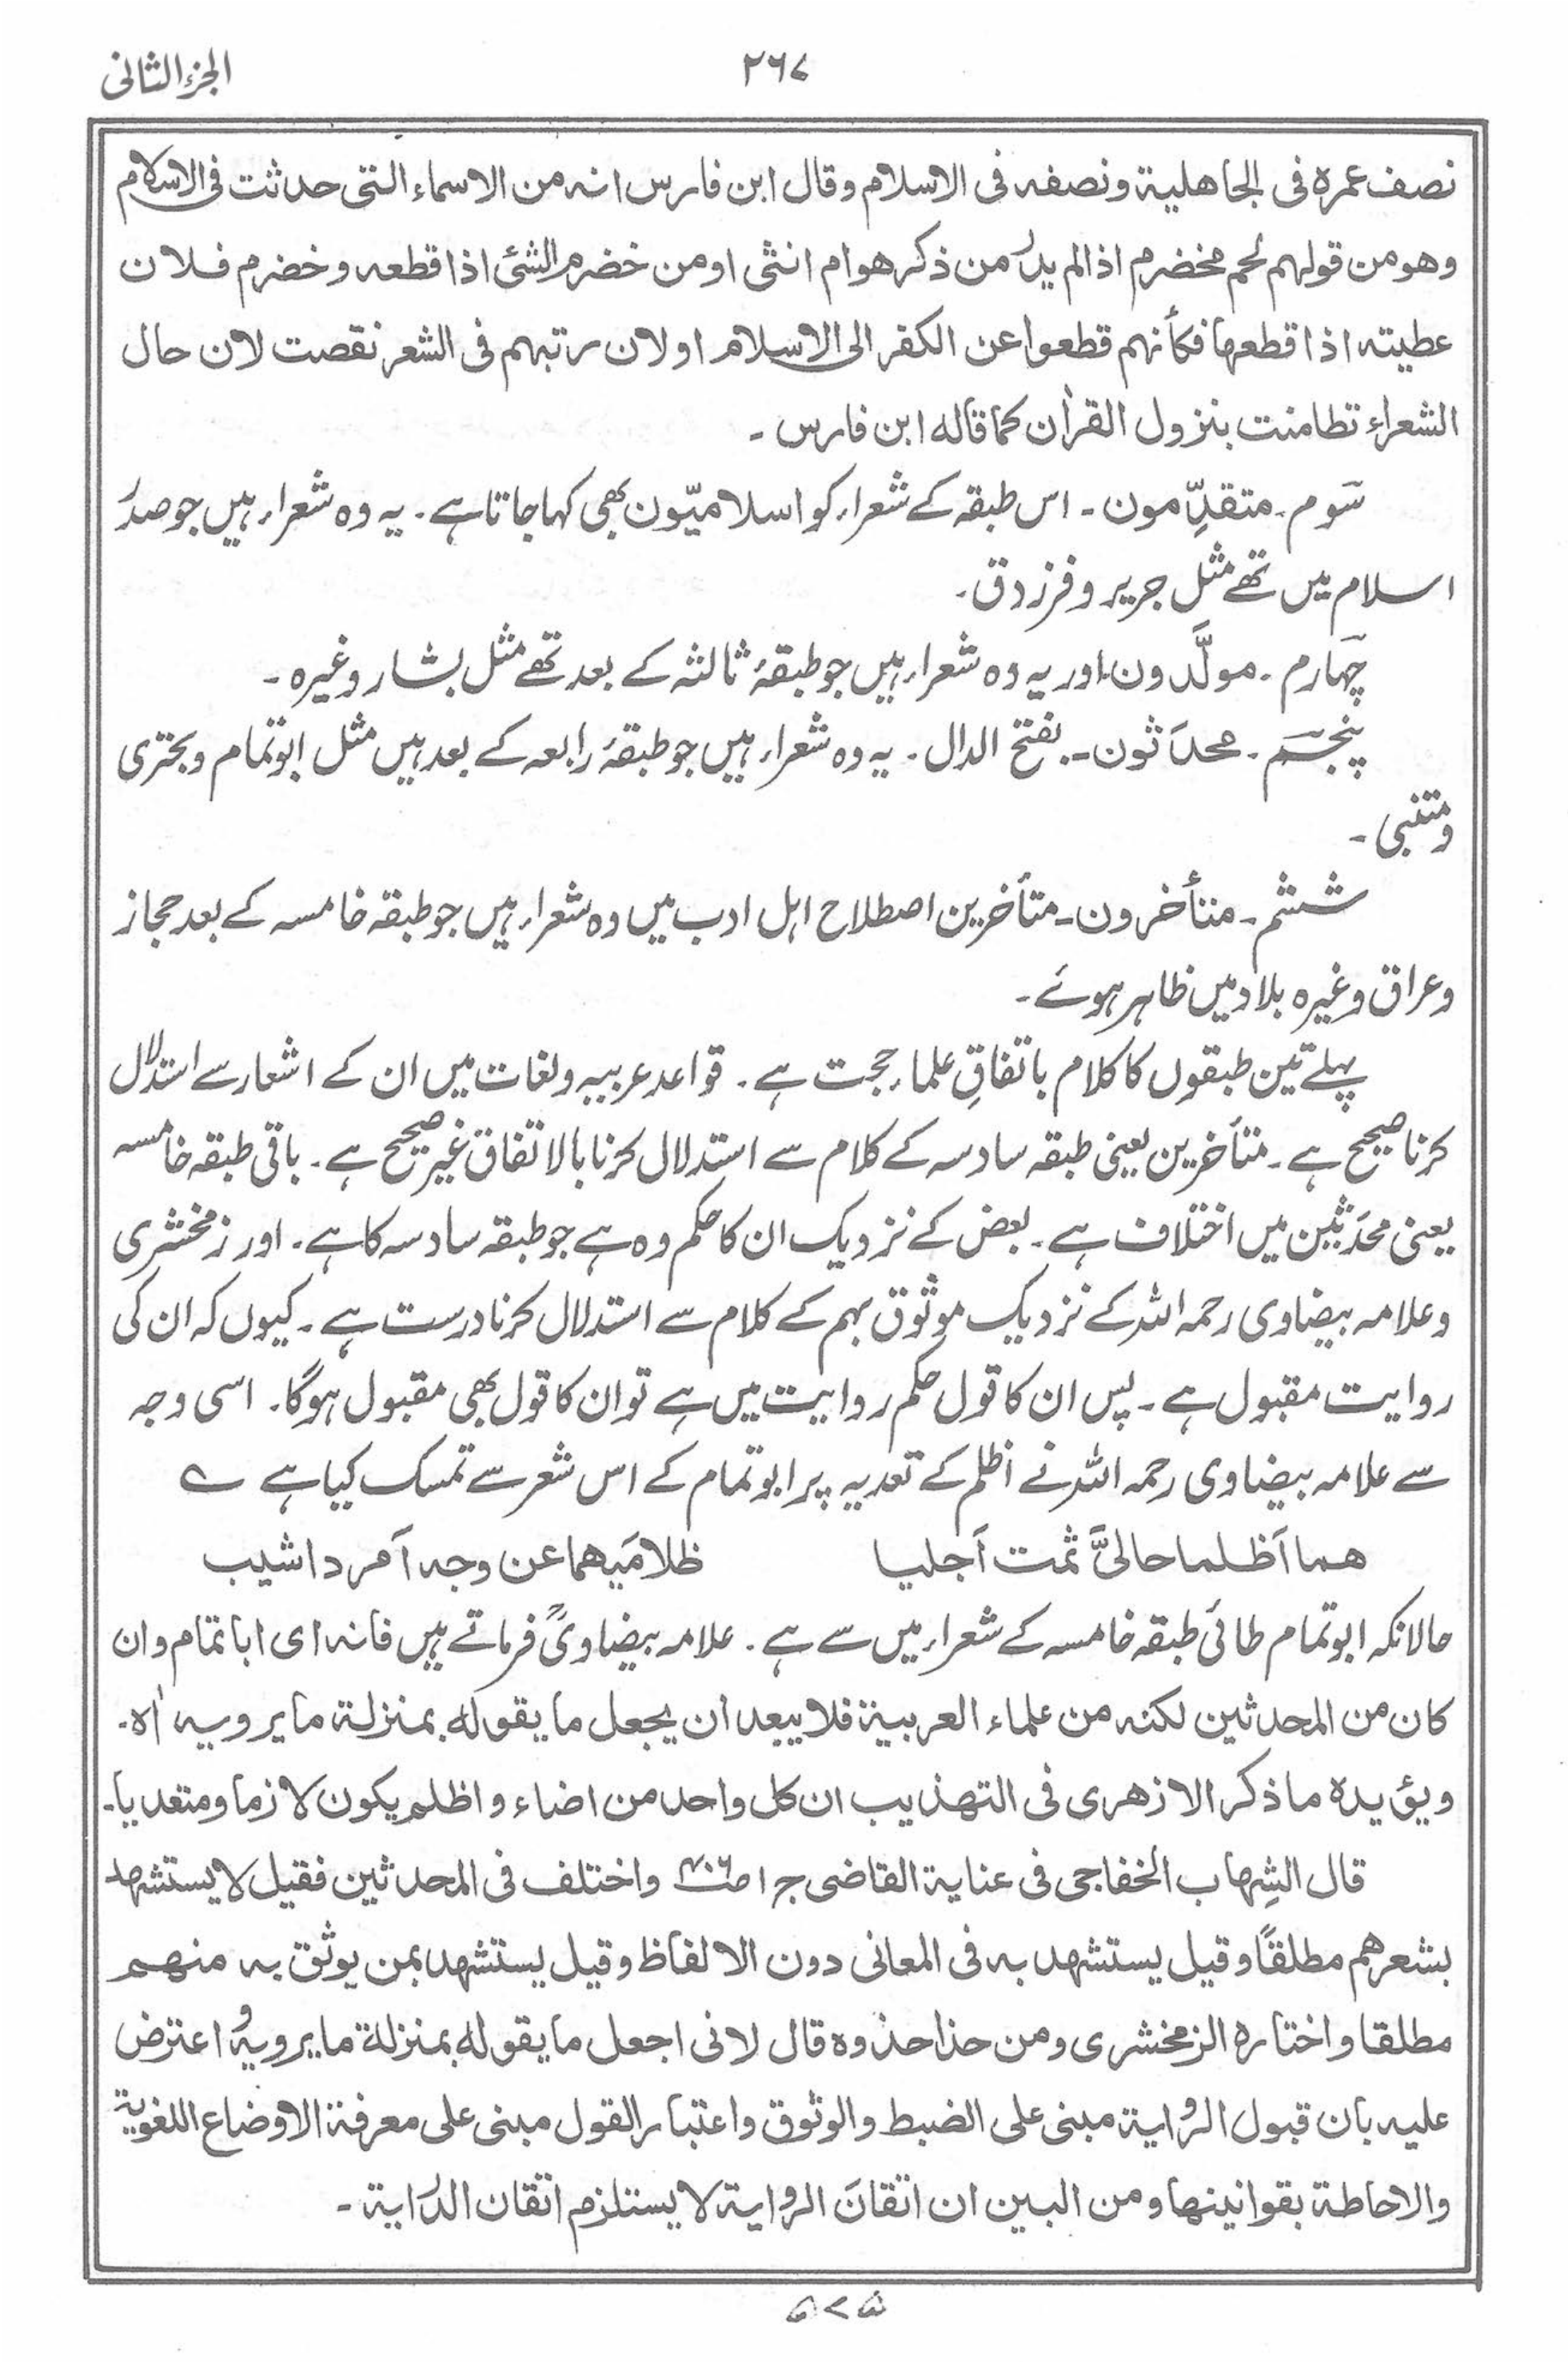 الجزء الثانی
۲۶۷
نصف عمرہ فی الجاھلیۃ ونصفہ فی الاسلام وقال ابن فارس انہ من الاسماء التی حدثت فی الاسلام
وھو من قولہم لحم مخضرم اذا لم یدر من ذکر ھو ام انثی او من خضرم الشئ اذا قطعہ وخضرم فلان
عطیتہ اذا قطعہا فکأنہم قطعوا عن الکفر الی الاسلام او لان رتبہم فی الشعر نقصت لان حال
الشعراء تطامنت بنزول القراٰن کما قالہ ابن فارس ۔
سَوم ۔ متقدِّمون ۔ اس طبقہ کے شعراء کو اسلامیّون بھی کہا جاتا ہے ۔ یہ وہ شعراء ہیں جو صدرِ
اسلام میں تھے مثل جریر و فرزدق ۔
چہارم ۔ مولَّدون ۔ اور یہ وہ شعراء ہیں جو طبقۂ ثالثہ کے بعد تھے مثل بشار وغیرہ ۔
پنجم ۔ محدَثون ۔ بفتح الدال ۔ یہ وہ شعراء ہیں جو طبقۂ رابعہ کے بعد ہیں مثل ابوتمام و بحتری
و متنبی ۔
ششم ۔ متأخرون ۔ متأخرین اصطلاح اہل ادب میں وہ شعراء ہیں جو طبقہ خامسہ کے بعد حجاز
و عراق وغیرہ بلاد میں ظاہر ہوئے ۔
پہلے تین طبقوں کا کلام باتفاقِ علماء حجت ہے ۔ قواعد عربیہ و لغات میں ان کے اشعار سے استدلال
کرنا صحیح ہے ۔ متأخرین یعنی طبقہ سادسہ کے کلام سے استدلال کرنا بالاتفاق غیر صحیح ہے ۔ باقی طبقہ خامسہ
یعنی محدَثین میں اختلاف ہے ۔ بعض کے نزدیک ان کا حکم وہ ہے جو طبقہ سادسہ کا ہے ۔ اور زمخشری
و علامہ بیضاوی رحمہ اللہ کے نزدیک موثوق بہم کے کلام سے استدلال کرنا درست ہے ۔ کیوں کہ ان کی
روایت مقبول ہے ۔ پس ان کا قول حکم روایت میں ہے تو ان کا قول بھی مقبول ہوگا ۔ اسی وجہ
سے علامہ بیضاوی رحمہ اللہ نے اظلم کے تعدیہ پر ابوتمام کے اس شعر سے تمسک کیا ہے ؎
ھما اَظلما حالیَّ ثمت اَجلیا ظلامَیھما عن وجہ اَمرد اشیب
حالانکہ ابوتمام طائی طبقہ خامسہ کے شعراء میں سے ہے ۔ علامہ بیضاویؒ فرماتے ہیں فانہ ای ابا تمام وان
کان من المحدثین لکنہ من علماء العربیۃ فلا یبعد ان یجعل ما یقولہ بمنزلۃ ما یرویہ اٰہ ۔
ویؤیدہ ما ذکر الازھری فی التھذیب ان کل واحد من اضاء و اظلم یکون لازما ومتعدیا ۔
قال الشِہاب الخفاجی فی عنایۃ القاضی ج ۱ ص۴۰۶ واختلف فی المحدثین فقیل لا یستشہد
بشعرھم مطلقًا وقیل یستشہد بہ فی المعانی دون الالفاظ وقیل یستشہد بمن یوثق بہ منھم
مطلقا واختارہ الزمخشری ومن حذا حذوہ قال لانی اجعل ما یقولہ بمنزلۃ ما یرویہ و اعترض
علیہ بان قبول الروایۃ مبنی علی الضبط والوثوق واعتبار القول مبنی علی معرفۃ الاوضاع اللغویۃ
والاحاطۃ بقوانینھا ومن البین ان اتقانَ الروایۃ لا یستلزم اتقان الدرایۃ ۔
۵۷۵